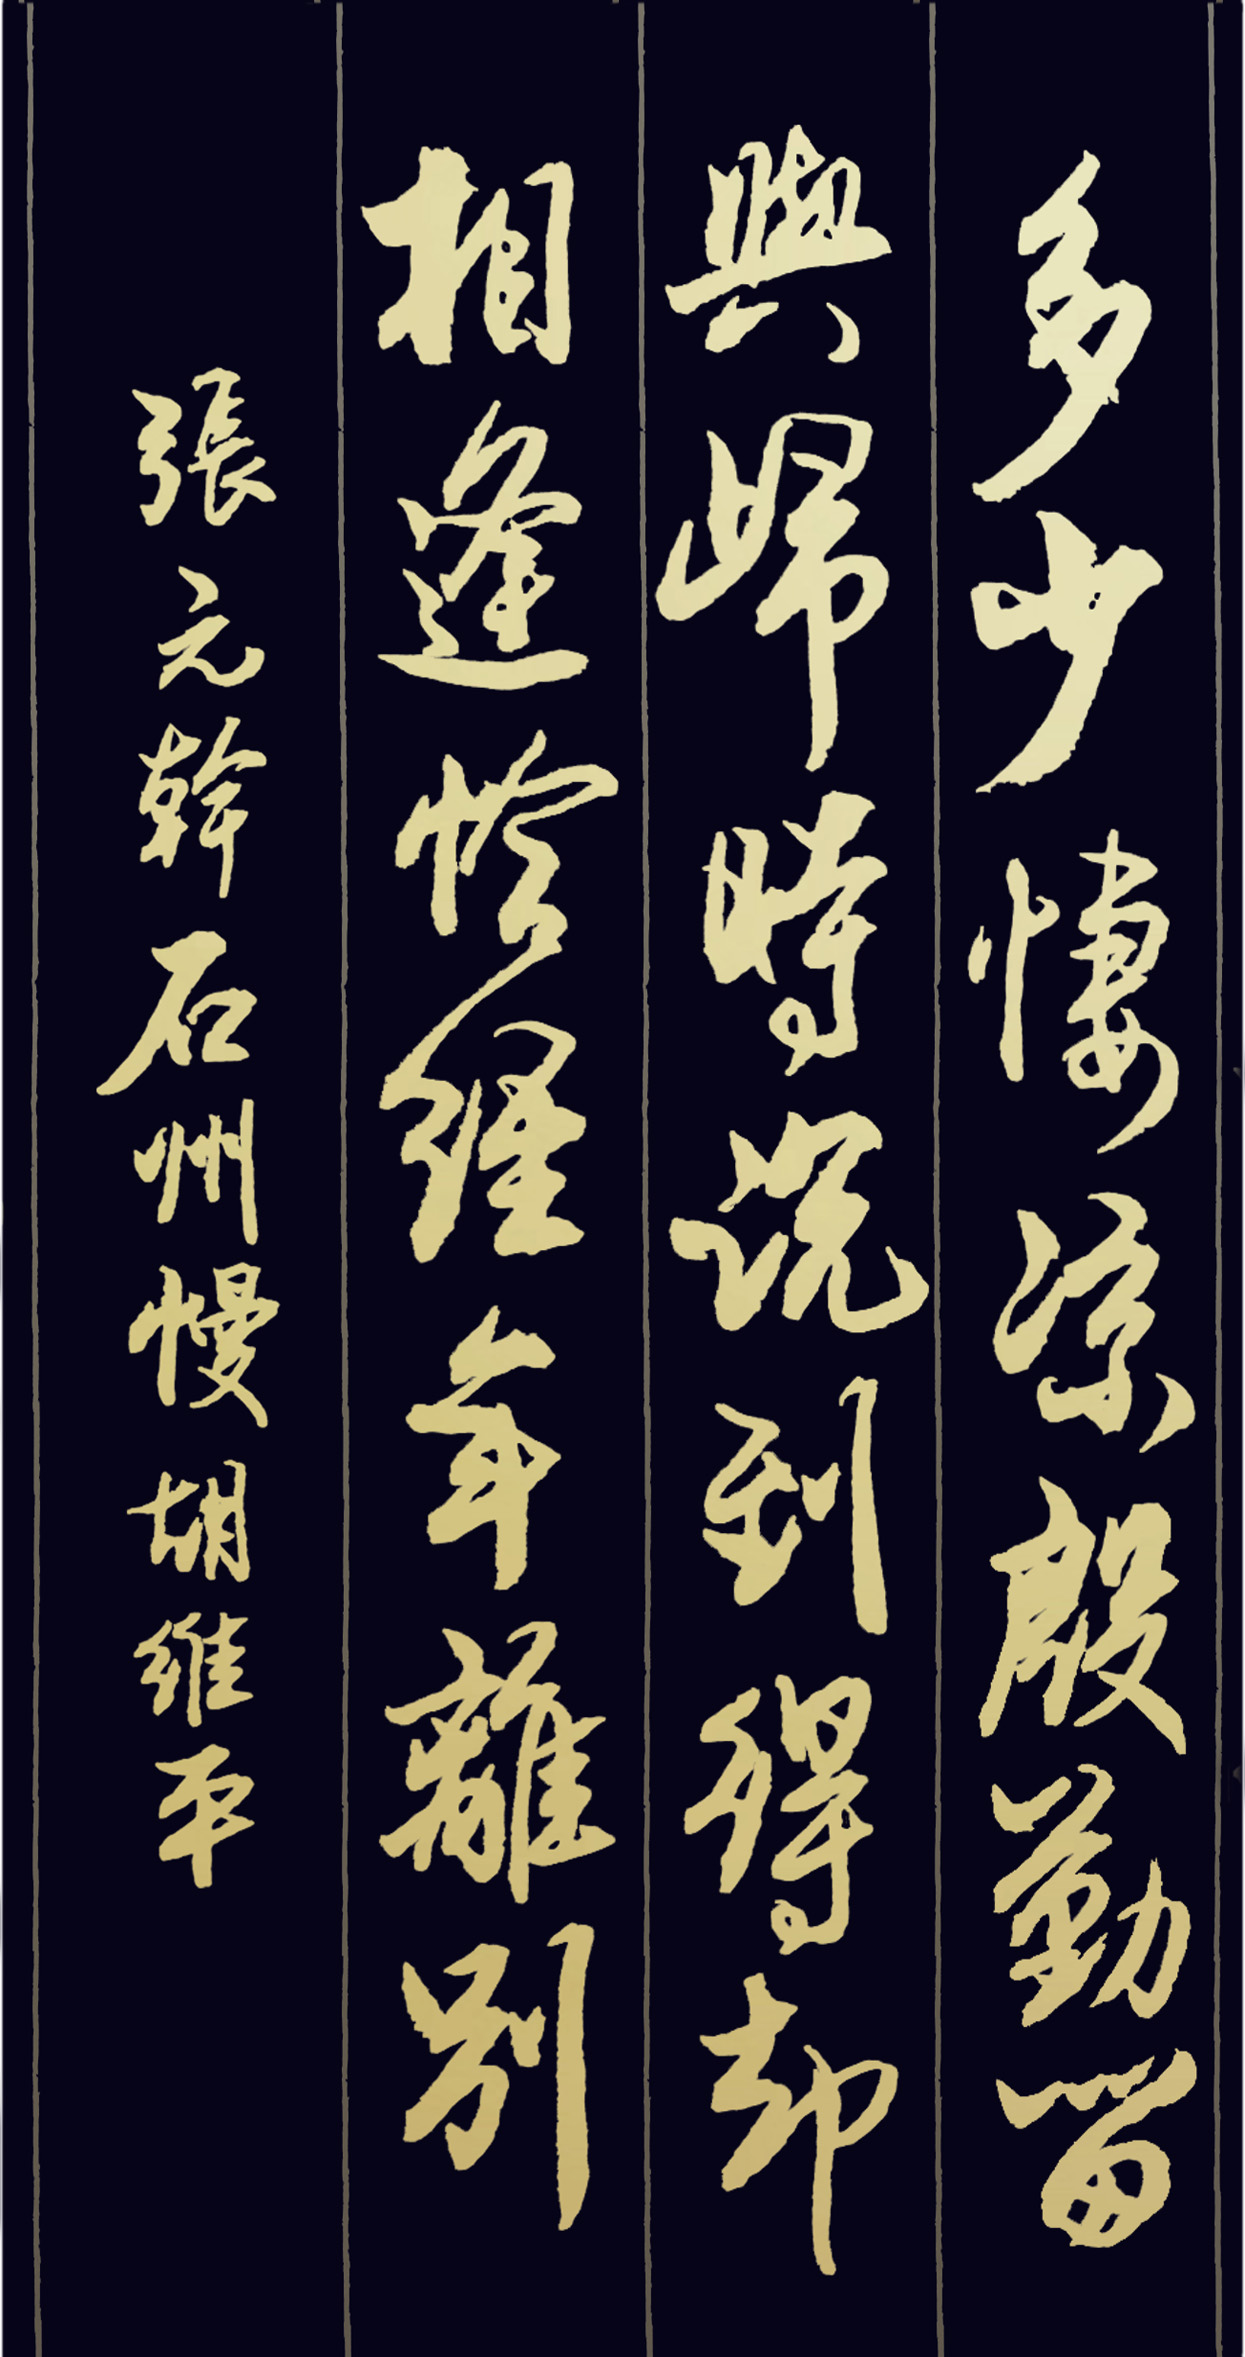 多少悽涼殷勤留
與歸時說到得却
相逢恰經年離別
張元幹石州慢 胡維平